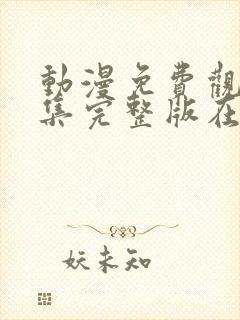 動漫免費觀
集完整版在
妖未知